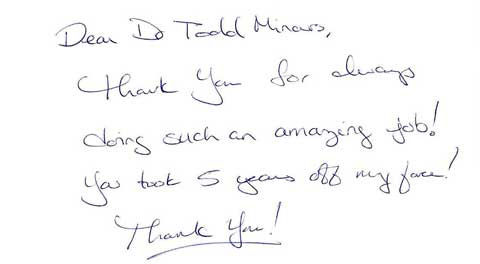 Dear Dr Todd Minars,
Thank You for always
doing such an amazing job!
You took 5 years off my face!
Thank You!